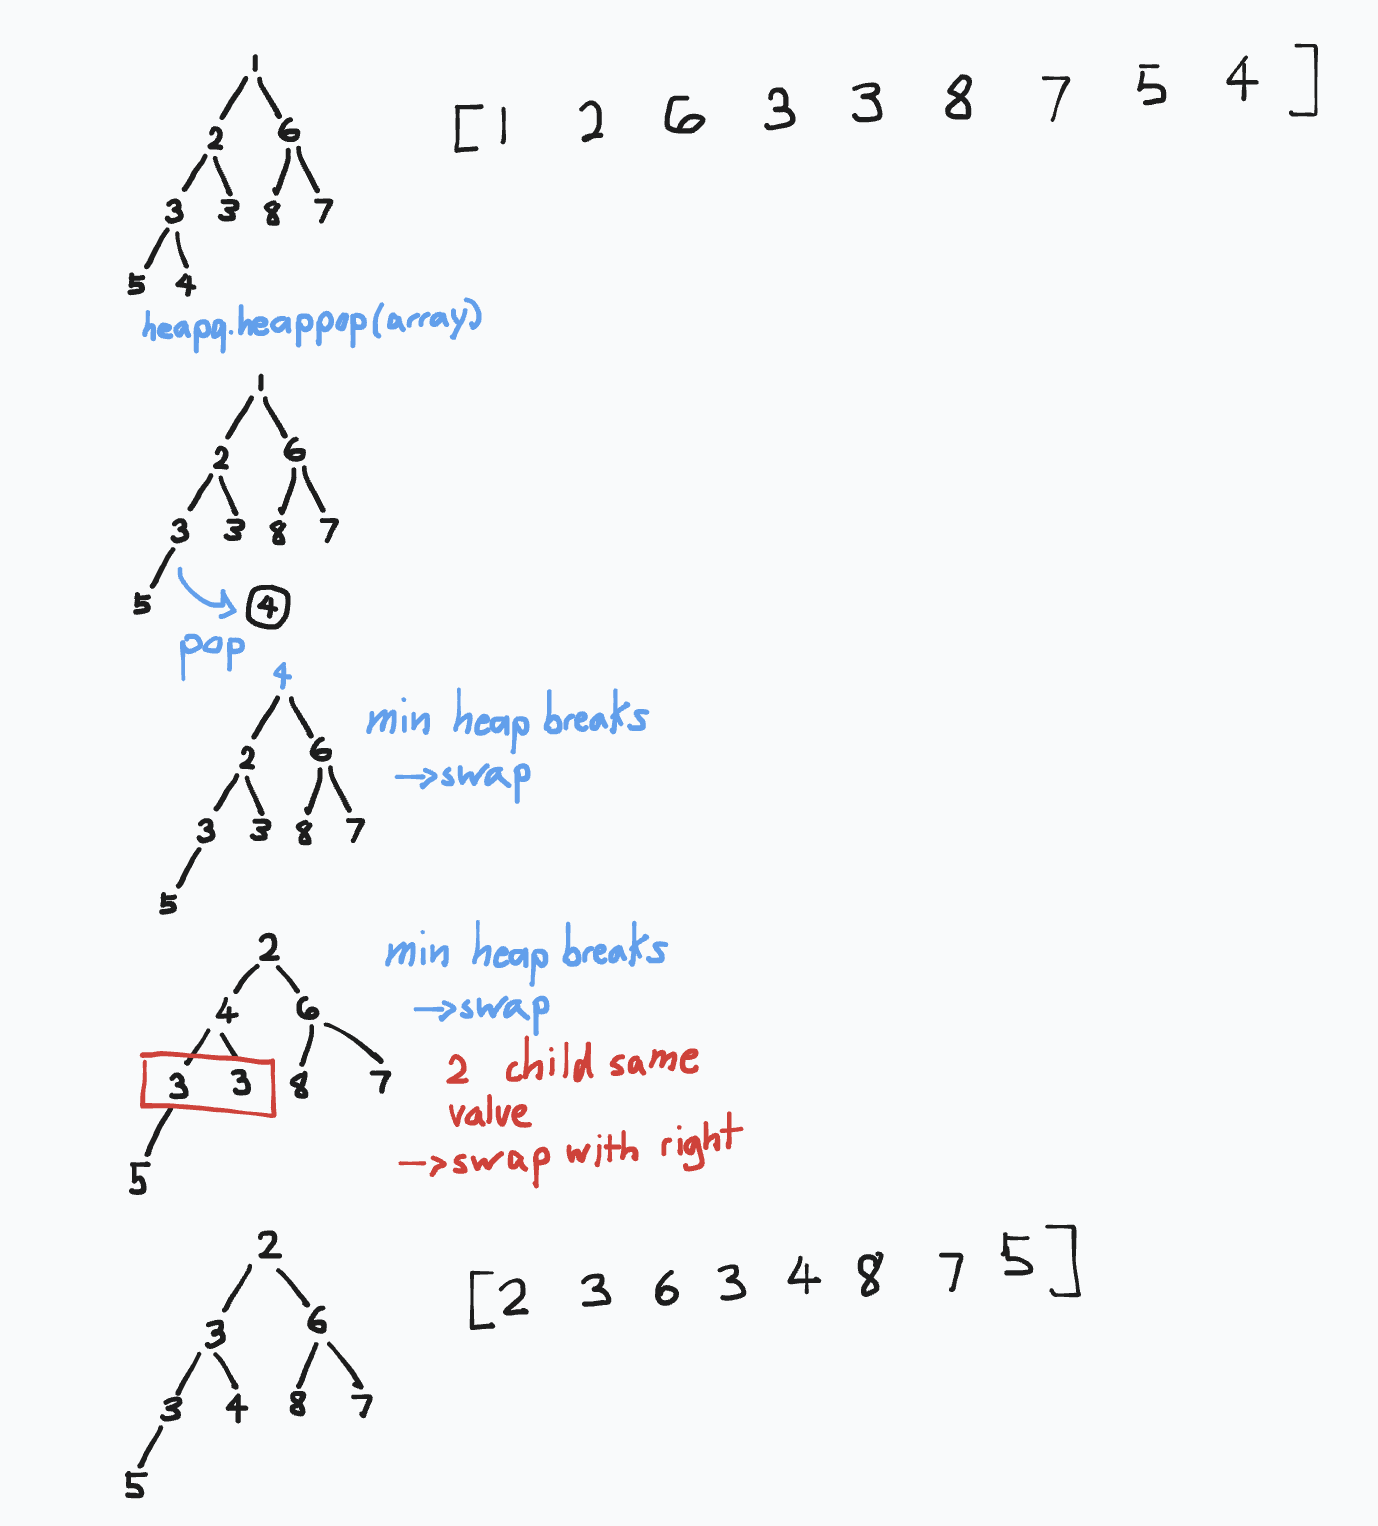 1
[1 2 6 3 3 8 7 5 4]
2 6
3 3 8 7
5 4
heapq.heappop(array)
1
2 6
3 3 8 7
5 4
pop
4
min heap breaks
2 6
→swap
3 3 8 7
5
2
min heap breaks
4 6
→swap
3 3 8 7
2 child same
value
→swap with right
5
2
[2 3 6 3 4 8 7 5]
3 6
3 4 8 7
5